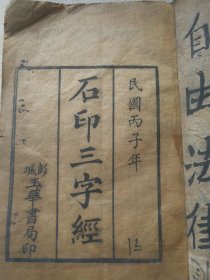 民國丙子年
石印三字經
彭城
玉華書局印
自由法律